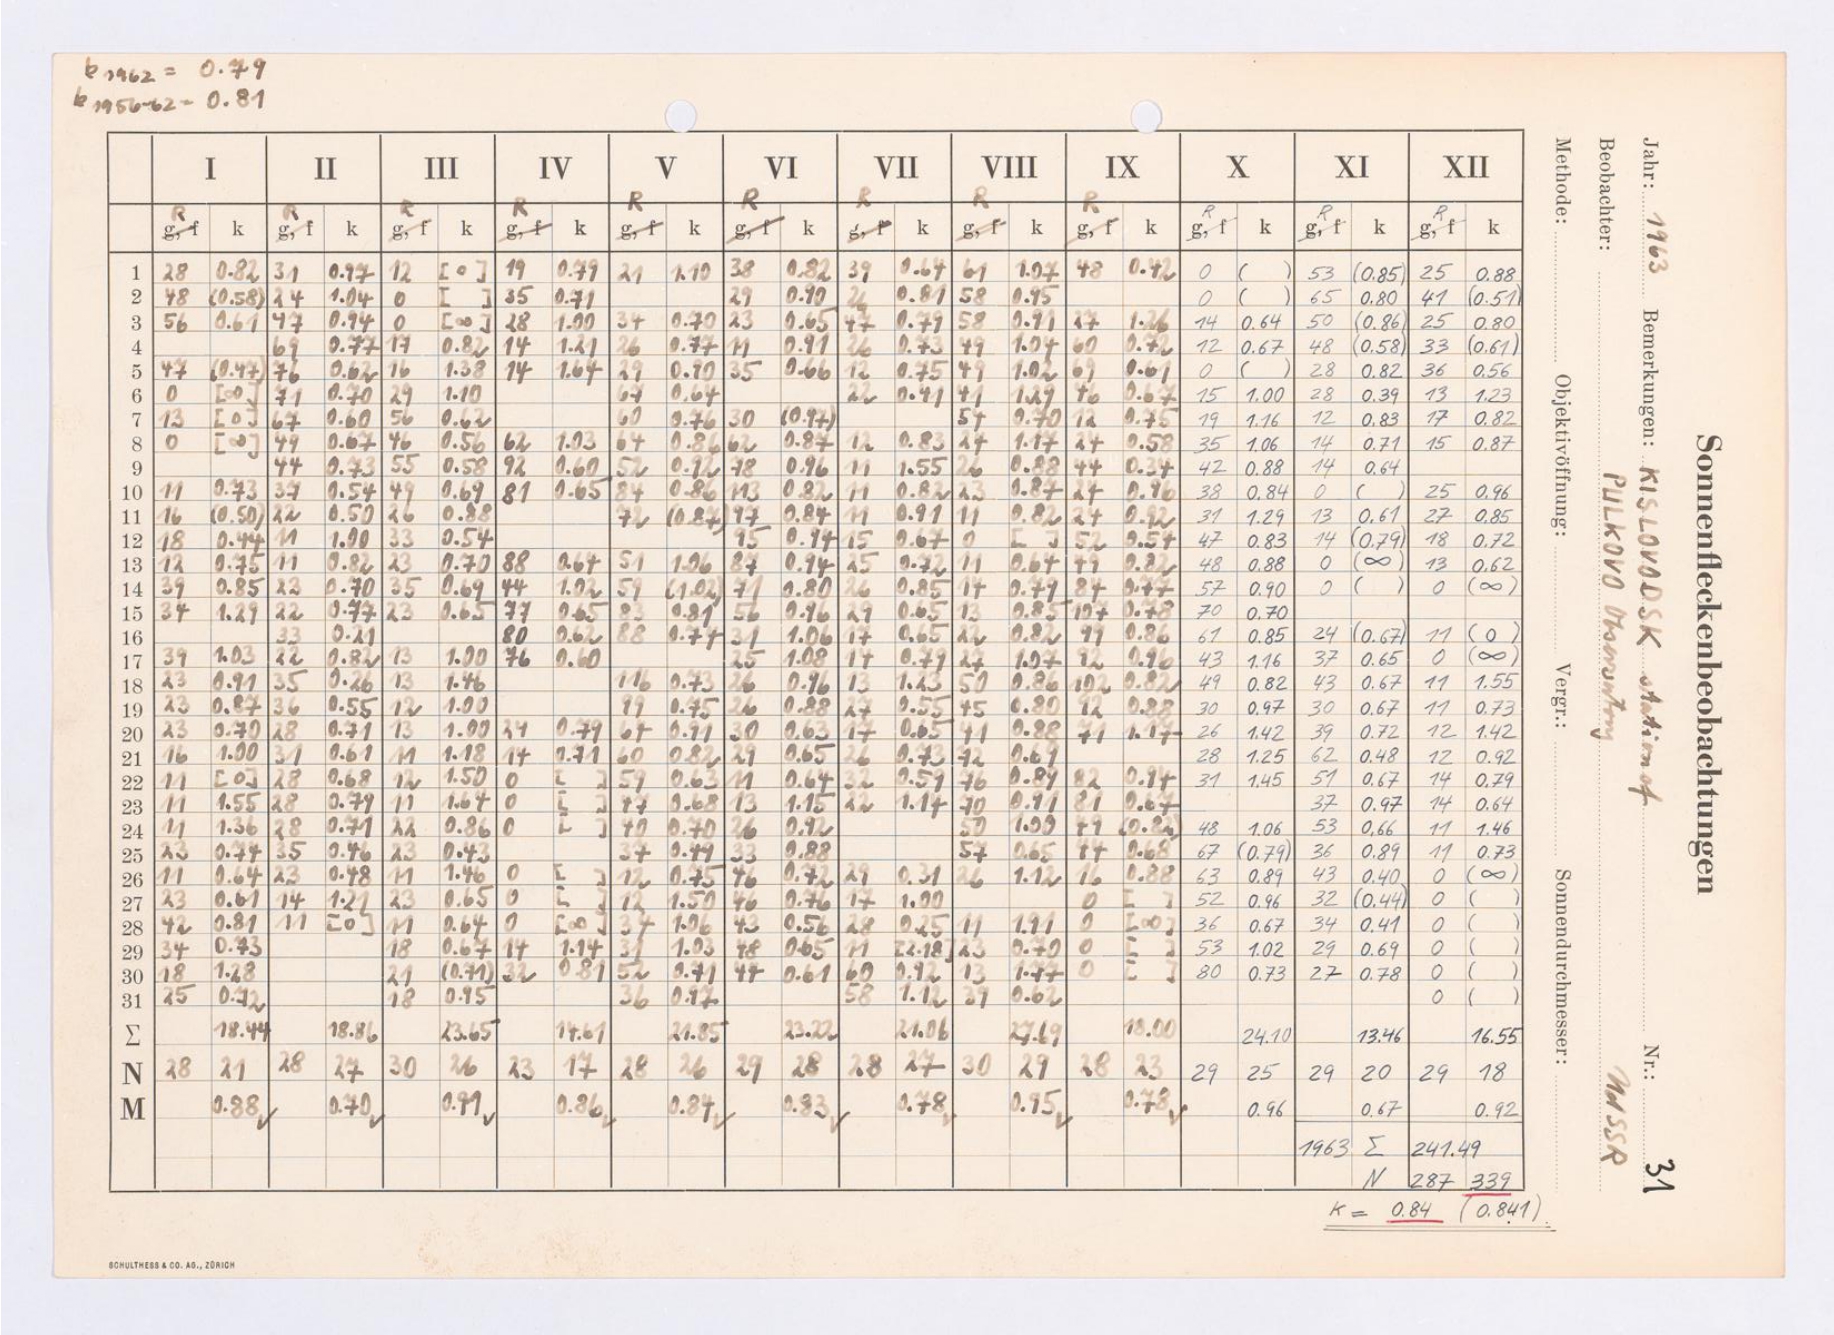 k 1962 = 0.79
k 1956-62 = 0.81
I II III IV V VI VII VIII IX X XI XII
R R R R R R R R R R R R
g, f k g, f k g, f k g, f k g, f k g, f k g, f k g, f k g, f k g, f k g, f k g, f k
1 28 0.82 31 0.97 12 [0] 19 0.79 21 1.10 38 0.82 39 0.64 61 1.07 48 0.42 0 ( ) 53 (0.85) 25 0.88
2 48 (0.58) 24 1.04 0 [ ] 35 0.71 29 0.90 0.81 58 0.95 0 ( ) 65 0.80 41 (0.51)
3 56 0.61 47 0.94 0 [∞] 28 1.00 34 0.70 23 0.65 47 0.79 58 0.91 27 1.26 14 0.64 50 (0.86) 25 0.80
4 69 0.77 17 0.82 14 1.21 26 0.77 11 0.91 26 0.73 49 1.04 60 0.72 12 0.67 48 (0.58) 33 (0.61)
5 47 (0.47) 76 0.62 16 1.38 14 1.64 29 0.90 35 0.66 12 0.75 49 1.02 69 0.61 0 ( ) 28 0.82 36 0.56
6 0 [∞] 71 0.70 29 1.10 67 0.64 22 0.41 41 1.29 46 0.67 15 1.00 28 0.39 13 1.23
7 13 [0] 67 0.60 56 0.62 60 0.76 30 (0.97) 54 0.70 12 0.75 19 1.16 12 0.83 17 0.82
8 0 [∞] 49 0.67 46 0.56 62 1.03 64 0.86 62 0.87 12 0.83 24 1.17 24 0.58 35 1.06 14 0.71 15 0.87
9 44 0.73 55 0.58 92 0.60 52 0.92 78 0.96 11 1.55 26 0.88 44 0.34 42 0.88 14 0.64
10 11 0.73 37 0.54 49 0.69 81 0.65 84 0.86 113 0.82 11 0.82 23 0.87 24 0.96 38 0.84 0 ( ) 25 0.96
11 16 (0.50) 22 0.50 26 0.88 72 (0.87) 97 0.84 11 0.91 11 0.82 24 0.92 31 1.29 13 0.61 27 0.85
12 18 0.44 11 1.00 33 0.54 95 0.94 15 0.67 0 [ ] 52 0.54 47 0.83 14 (0.79) 18 0.72
13 12 0.75 11 0.82 23 0.70 88 0.64 51 1.06 87 0.94 25 0.72 11 0.64 49 0.82 48 0.88 0 (∞) 13 0.62
14 39 0.85 23 0.70 35 0.69 44 1.02 59 (1.02) 71 0.80 26 0.85 14 0.79 84 0.77 57 0.90 0 ( ) 0 (∞)
15 34 1.29 22 0.77 23 0.65 77 0.65 83 0.81 56 0.96 29 0.65 13 0.85 107 0.78 70 0.70
16 33 0.21 80 0.62 88 0.74 31 1.06 17 0.65 22 0.82 99 0.86 61 0.85 24 (0.67) 11 (0)
17 39 1.03 22 0.82 13 1.00 76 0.60 25 1.08 14 0.79 27 1.07 92 0.96 43 1.16 37 0.65 0 (∞)
18 23 0.91 35 0.26 13 1.46 116 0.73 26 0.96 13 1.23 50 0.86 102 0.82 49 0.82 43 0.67 11 1.55
19 23 0.87 36 0.55 12 1.00 99 0.75 26 0.88 27 0.55 45 0.80 92 0.88 30 0.97 30 0.67 11 0.73
20 23 0.70 28 0.71 13 1.00 24 0.79 64 0.91 30 0.63 17 0.65 41 0.88 71 1.17 26 1.42 39 0.72 12 1.42
21 16 1.00 31 0.61 11 1.18 14 0.71 60 0.82 29 0.65 26 0.73 72 0.69 28 1.25 62 0.48 12 0.92
22 11 [0] 28 0.68 12 1.50 0 [ ] 59 0.63 11 0.64 32 0.59 76 0.89 82 0.94 31 1.45 51 0.67 14 0.79
23 11 1.55 28 0.79 11 1.64 0 [ ] 47 0.68 13 1.15 22 1.14 70 0.91 81 0.67 37 0.97 14 0.64
24 11 1.36 28 0.71 22 0.86 0 [ ] 40 0.70 26 0.92 50 1.00 49 (0.82) 48 1.06 53 0.66 11 1.46
25 23 0.74 35 0.46 23 0.43 37 0.49 33 0.88 57 0.65 44 0.68 67 (0.79) 36 0.89 11 0.73
26 11 0.64 23 0.48 11 1.46 0 [ ] 12 0.75 46 0.72 29 0.31 26 1.12 16 0.88 63 0.89 43 0.40 0 (∞)
27 23 0.61 14 1.21 23 0.65 0 [ ] 12 1.50 46 0.76 17 1.00 0 [ ] 52 0.96 32 (0.44) 0 ( )
28 42 0.81 11 [0] 11 0.64 0 [∞] 34 1.06 43 0.56 28 0.25 11 1.91 0 [∞] 36 0.67 34 0.41 0 ( )
29 34 0.73 18 0.67 14 1.14 31 1.03 48 0.65 11 [2.18] 23 0.70 0 [ ] 53 1.02 29 0.69 0 ( )
30 18 1.28 21 (0.71) 32 0.81 52 0.71 44 0.61 60 0.92 13 1.77 0 [ ] 80 0.73 27 0.78 0 ( )
31 25 0.72 18 0.95 36 0.97 58 1.12 39 0.62 0 ( )
Σ 18.44 18.86 23.65 14.61 21.85 23.22 21.06 27.69 18.00 24.10 13.46 16.55
N 28 21 28 27 30 26 23 17 28 26 29 28 28 27 30 29 28 23 29 25 29 20 29 18
M 0.88 0.70 0.91 0.86 0.84 0.83 0.78 0.95 0.78 0.96 0.67 0.92
1963 Σ 241.49
N 287 339
K = 0.84 (0.841)
SCHULTHESS & CO. AG., ZÜRICH
Sonnenfleckenbeobachtungen
Jahr: 1963 Bemerkungen: KISLOVODSK station of Nr.: 31
Beobachter: PULKOVO Observatory UdSSR
Methode: Objektivöffnung: Vergr.: Sonnendurchmesser: